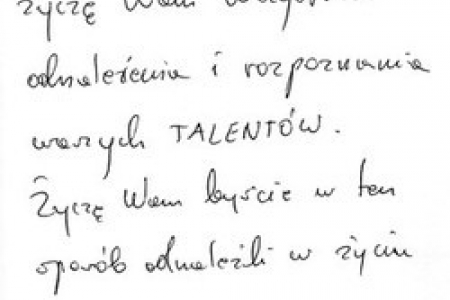 życzę Wam
odnalezienia i rozpoznania
waszych TALENTÓW.
Życzę Wam byście w ten
sposób odnaleźli w życiu